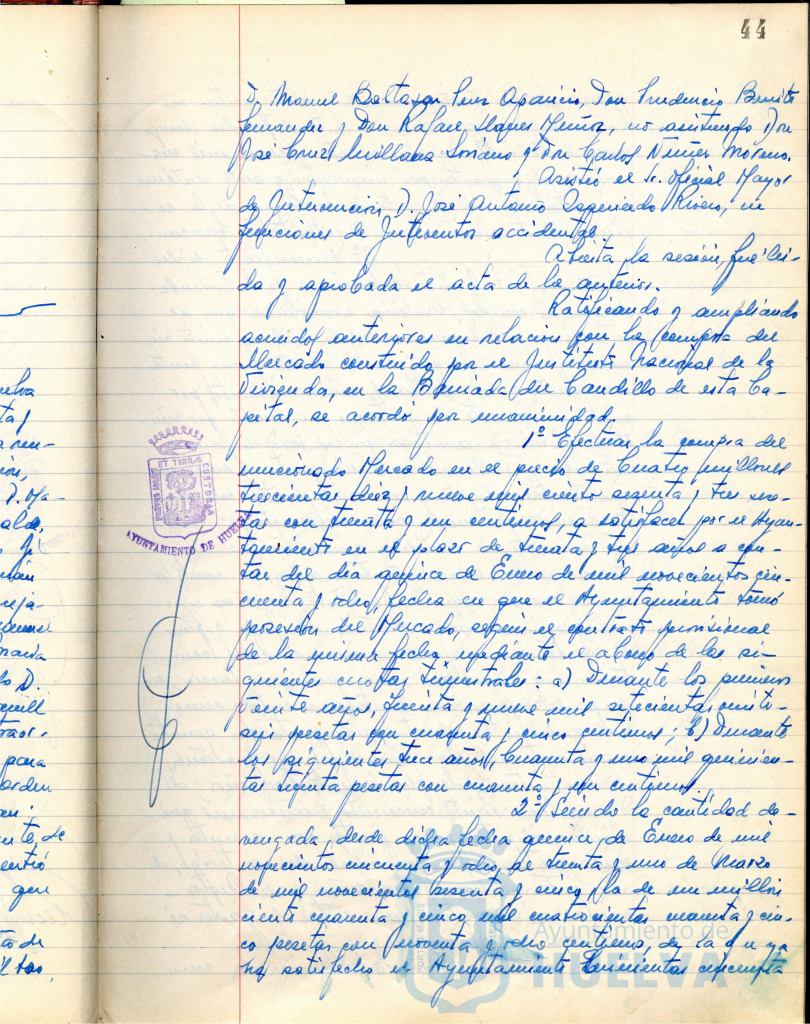 44
D. Manuel Baltasar Perez Aparicio, Don Prudencio Benito
Fernandez y Don Rafael Llanes Muñoz, no asistiendo Don
José Cruz Millana Soriano y Don Carlos Nuñez Moreno.
Asistió el Sr. Oficial Mayor
de Intervencion, D. José Antonio Rivero, en
funciones de Interventor accidental.
Abierta la sesión, fué lei-
da y aprobada el acta de la anterior.
Ratificando y ampliando
acuerdos anteriores en relacion con la compra del
Mercado construido por el Instituto Nacional de la
Vivienda, en la Barriada del Caudillo de esta Ca-
pital, se acordó por unanimidad:
1º Efectuar la compra del
mencionado Mercado en el precio de cuatro millones
trescientas diez y nueve mil ciento sesenta y tres pese-
tas con treinta y un centimos, a satisfacer por el Ayun-
tamiento en el plazo de treinta y tres años a con-
tar del dia quince de Enero de mil novecientos cin-
cuenta y ocho, fecha en que el Ayuntamiento tomó
posesión del Mercado, según el contrato provisional
de la misma fecha mediante el abono de las si-
guientes cuotas trimestrales: a) Durante los primeros
veinte años, treinta y nueve mil setecientas
seis pesetas con cuarenta y cinco centimos; b) Durante
los siguientes trece años, cuarenta y uno mil quinien-
tas treinta pesetas con cuarenta y un centimos.
2º Siendo la cantidad de-
vengada, desde dicha fecha quince de Enero de mil
novecientos cincuenta y ocho, al treinta y uno de Marzo
de mil novecientos sesenta y cinco, la de un millon
ciento cuarenta y cinco mil cuatrocientas noventa y cin-
co pesetas con noventa y ocho centimos, de la que ya
ha satisfecho el Ayuntamiento cincuenta
AYUNTAMIENTO DE HUELVA
PORTUS MARIS ET TERRAE CUSTODIA
Ayuntamiento de
HUELVA